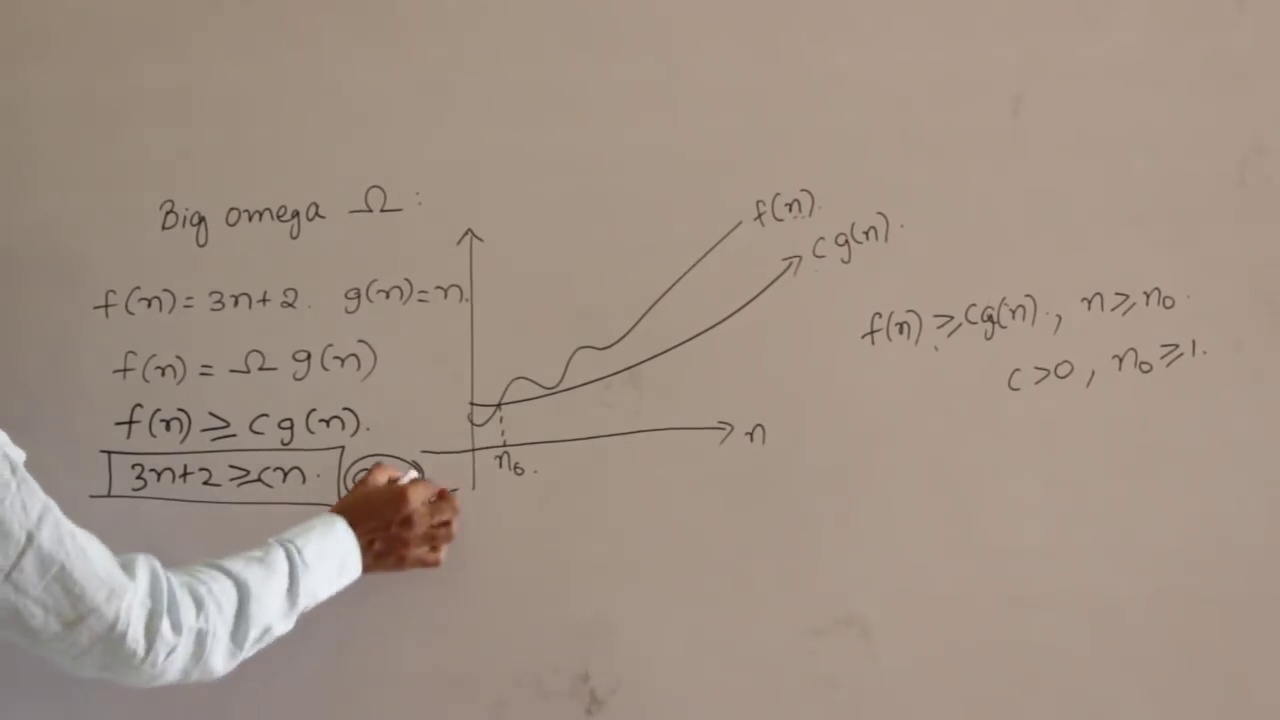 Big omega Ω:
f(n) = 3n+2. g(n)=n.
f(n) = Ω g(n)
f(n) ≥ cg(n).
3n+2 ≥ cn.
f(n).
c g(n).
n
n₀.
f(n) ≥ cg(n)., n ≥ n₀.
c > 0, n₀ ≥ 1.